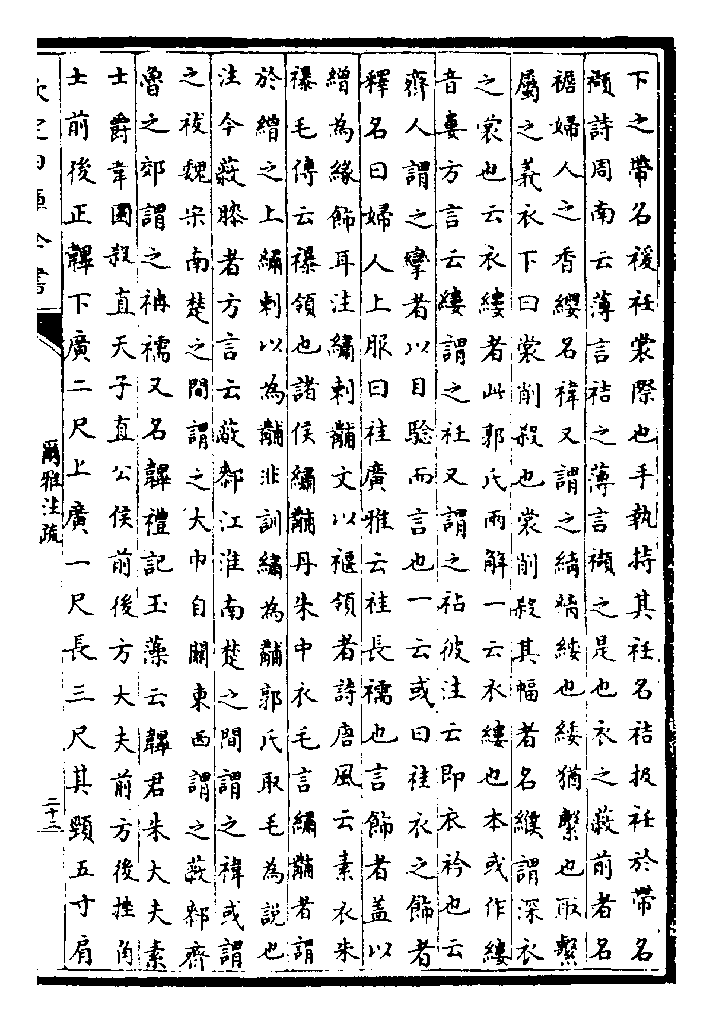 下之帶名褑衽裳際也手執持其衽名袺扱衽於帶名
襭詩周南云薄言袺之薄言襭之是也衣之蔽前者名
襜婦人之香纓名褘又謂之縭縭緌也緌猶繫也取繫
屬之義衣下曰裳削殺也裳削殺其幅者名纀謂深衣
之裳也云衣縷者此郭氏兩解一云衣縷也本或作縷
音婁方言云縷謂之衽又謂之袩彼注云即衣衿也云
齊人謂之攣者以目驗而言也一云或曰袿衣之飾者
釋名曰婦人上服曰袿廣雅云袿長襦也言飾者蓋以
繒為緣飾耳注繡刺黼文以褗領者詩唐風云素衣朱
襮毛傳云襮領也諸侯繡黼丹朱中衣毛言繡黼者謂
於繒之上繡刺以為黼非訓繡為黼郭氏取毛為説也
注今蔽膝者方言云蔽鄩江淮南楚之間謂之褘或謂
之袚魏宋南楚之間謂之大巾自關東西謂之蔽鄩齊
魯之郊謂之袡襦又名韠禮記玉藻云韠君朱大夫素
士爵韋圜殺直天子直公侯前後方大夫前方後挫角
士前後正韠下廣二尺上廣一尺長三尺其頸五寸肩
欽定四庫全書
爾雅注疏
二十二